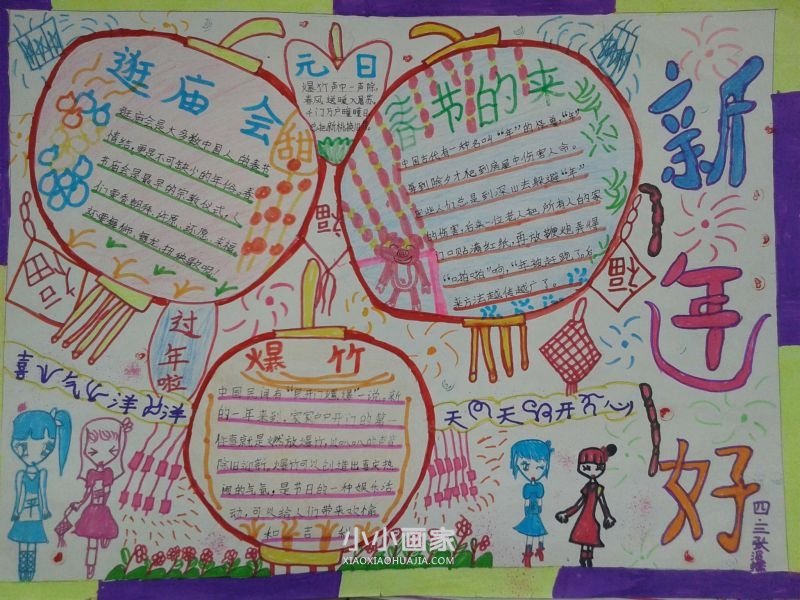 逛庙会
逛庙会是大多数中国人的春节
情结,更是不可缺少的年俗。春
节庙会是最早的宗教仪式,人
们要去朝拜、许愿、还愿、求福。
还要舞狮、舞龙、扭秧歌呢!
甜
福
元日
爆竹声中一声除,
春风送暖入屠苏。
千门万户曈曈日,
总把新桃换旧
福
春节的来
中国古代有一种名叫“年”的怪兽,“年”
每到除夕才起到房屋中伤害人命。
人们总是到深山去躲避“年”
的伤害,后来一位老人把所有人的家
门口贴满红纸,再放鞭炮弄得
“啪啪啪”响,“年”被赶跑了,后
来方法越传越广了。
福
新年好
过年啦
喜气洋洋
爆竹
中国民间有“开门爆竹”一说,新
的一年来到,家家户户开门的第一
件事就是燃放爆竹,以的声音
除旧迎新。爆竹可以创造出喜庆热
闹的气氛,是节日的一种娱乐活
动,可以给人们带来欢愉
和吉利
天天开心
四.三张
小小画家
XIAOXIAOHUAJIA.COM